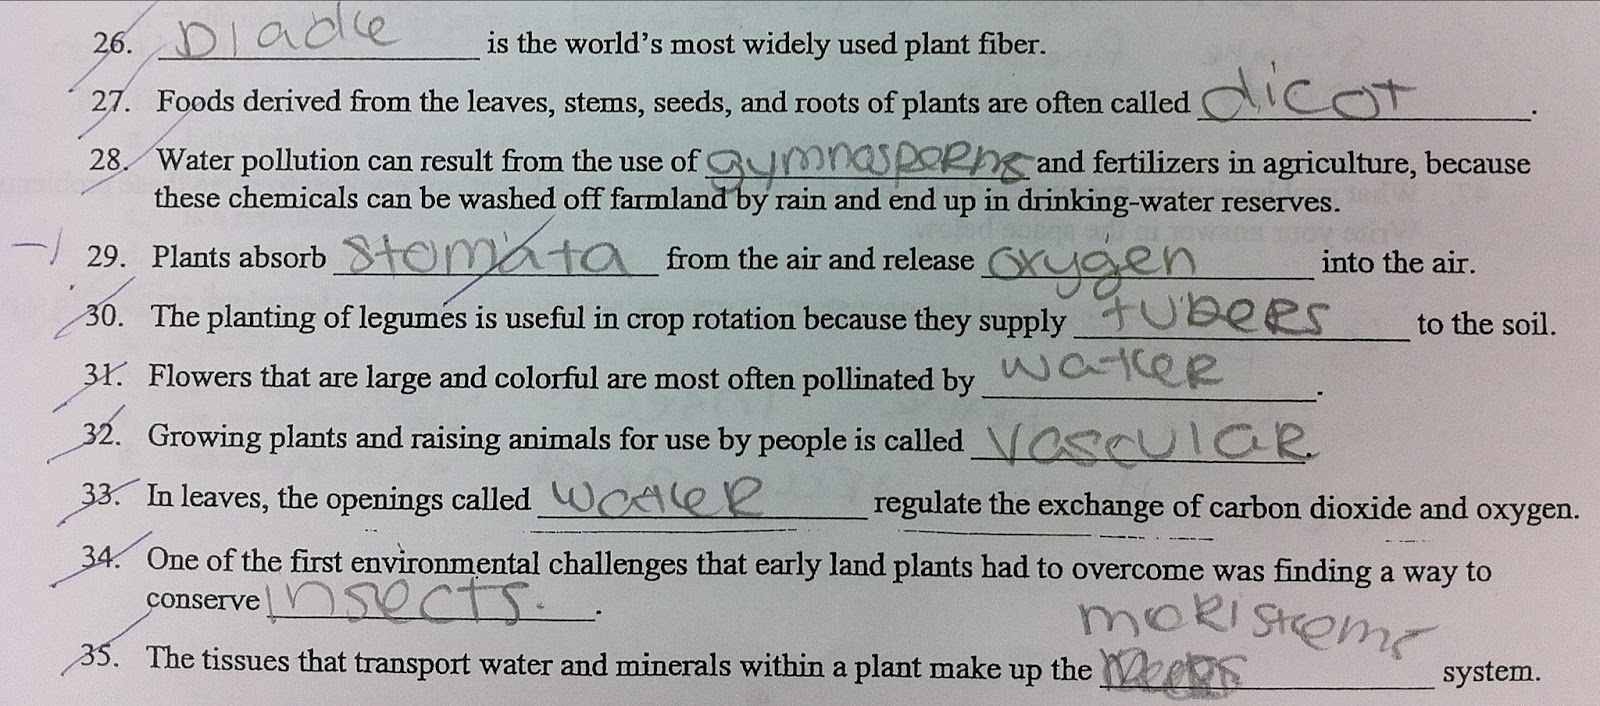 26. Bladle is the world's most widely used plant fiber.
27. Foods derived from the leaves, stems, seeds, and roots of plants are often called dicot.
28. Water pollution can result from the use of gymnosperns and fertilizers in agriculture, because
these chemicals can be washed off farmland by rain and end up in drinking-water reserves.
-1 29. Plants absorb stomata from the air and release oxygen into the air.
30. The planting of legumes is useful in crop rotation because they supply tubers to the soil.
31. Flowers that are large and colorful are most often pollinated by water.
32. Growing plants and raising animals for use by people is called vascular.
33. In leaves, the openings called water regulate the exchange of carbon dioxide and oxygen.
34. One of the first environmental challenges that early land plants had to overcome was finding a way to
conserve insects.
meristems
35. The tissues that transport water and minerals within a plant make up the system.